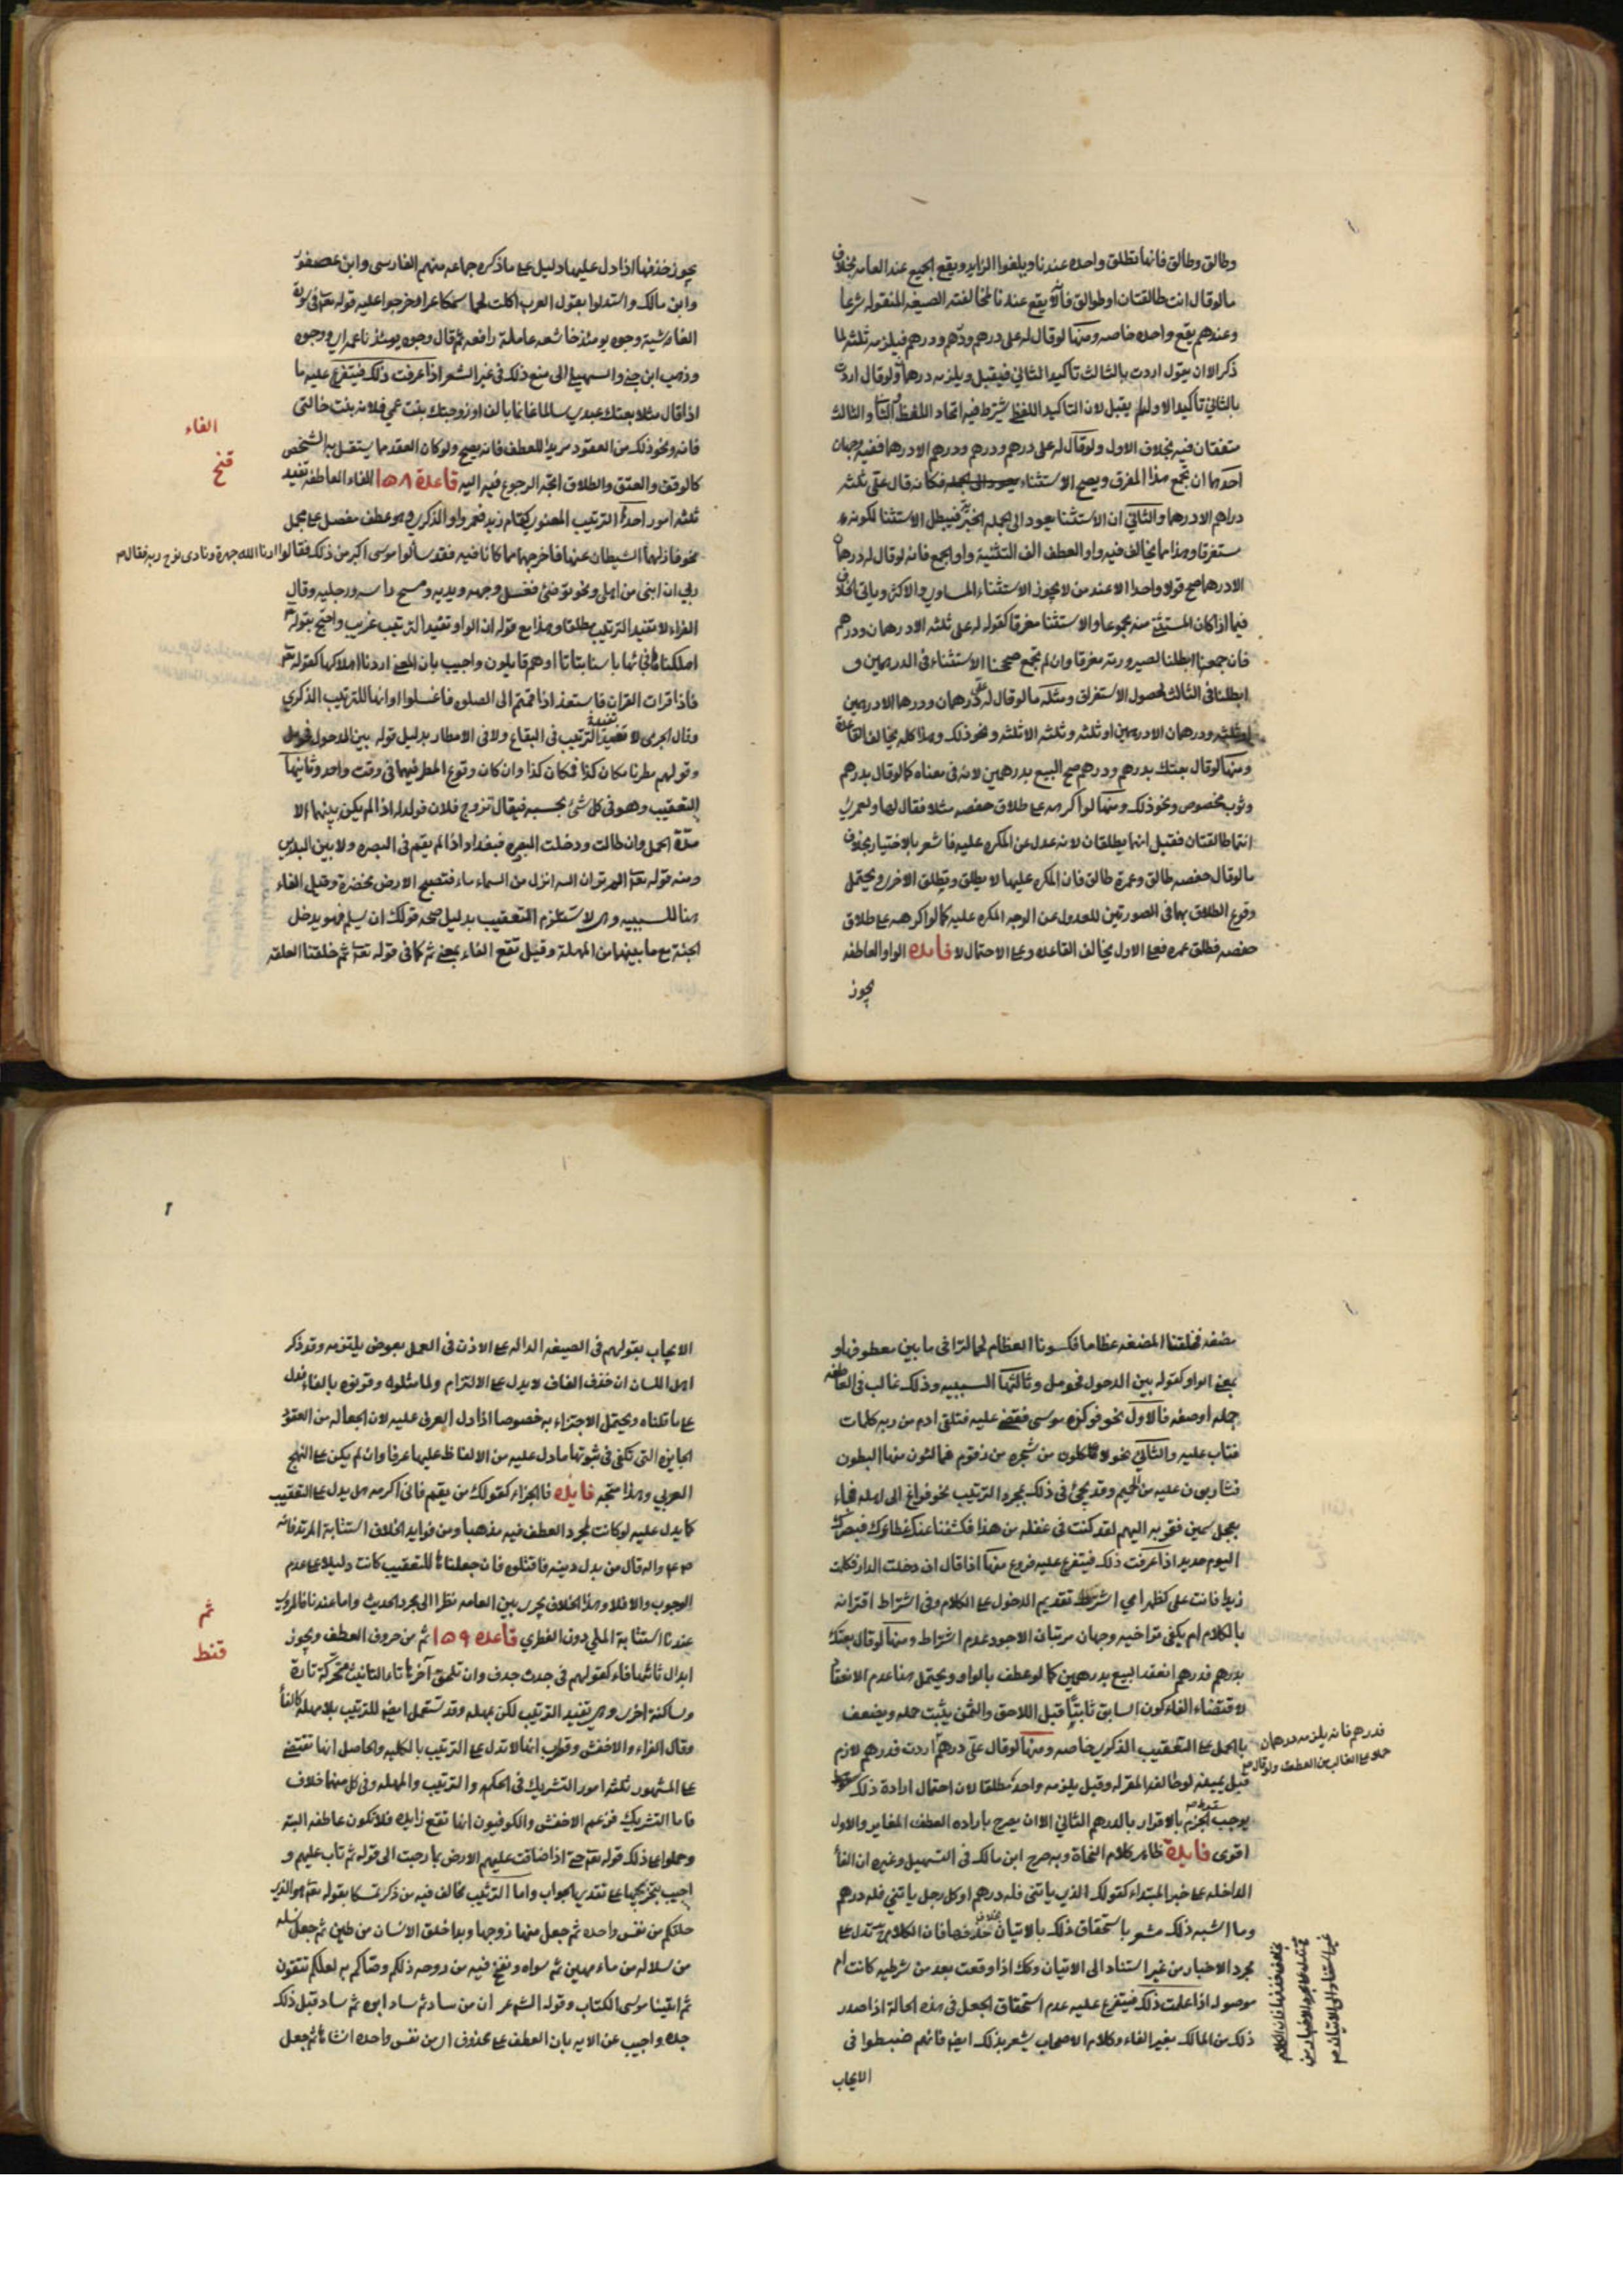 وطالق وطالق فانها تطلق واحده عندنا ويلغوا الزايد ويقع الجميع عند العامه بخلاف
مالوقال انت طالقتان او طوالق فانه لا يقع عندنا لمخالفته الصيغه المنقوله شرعا
وعندهم يقع واحده خاصه ومنها لوقال له على درهم ودرهم ودرهم فيلزمه ثلثه لما
ذكر الا ان يقول اردت بالثالث تاكيد الثاني فيقبل ويلزمه درهمان ولوقال اردت
بالثاني تاكيد الاول لم يقبل لان التاكيد اللفظي شرط فيه اتحاد اللفظ والثاني والثالث
متفقان فيه بخلاف الاول ولوقال له على درهم ودرهم ودرهم الا درهما ففيه وجهان
احدهما ان تجمع هذا المفرق ويصح الاستثناء فكانه قال على ثلثه
دراهم الا درهما والثاني ان الاستثنا يعود الى الجمله الاخيره فيبطل الاستثنا لكونه
مستغرقا وهذا مما يخالف فيه واو العطف الف التثنية واو الجمع فانه لوقال له درهمان
الا درهما صح قولا واحدا الا عند من لا يجوز الاستثناء المساوي والاكثر وياتي الخلاف
فيما اذا كان المستثنى منه مجموعا والاستثنا مفرقا كقوله له على ثلثه الا درهمان ودرهم
فان جمعنا ابطلنا لصيرورته مغرقا وان لم نجمع صححنا الاستثناء في الدرهمين و
ابطلنا في الثالث لحصول الاستغراق ومثله مالوقال له على درهمان ودرهما الا درهمين
او ثلثه ودرهمان الا درهمين او ثلثه وثلثه الا ثلثه ونحو ذلك وهذا كله يخالف القاعدة
ومنها لوقال بعتك بدرهم ودرهم صح البيع بدرهمين لانه في معناه كما لوقال بدرهم
وثوب مخصوص ونحو ذلك ومنها لو اكرهه على طلاق حفصه مثلا فقال لها ولعمرة
انتما طالقتان فقيل انهما يطلقان لانه عدل عن المكره عليه فاشعر بالاختيار بخلاف
مالوقال حفصه طالق وعمرة طالق فان المكره عليها لا يطلق وتطلق الاخرى ويحتمل
وقوع الطلاق بهما في الصورتين للعدول عن الوجه المكره عليه كما لو اكرهه على طلاق
حفصه فطلق عمره فعلى الاول يخالف القاعده وعلى الاحتمال لا فايده الواو العاطفه
يجوز
يجوز حذفها اذا دل عليها دليل على ما ذكره جماعه منهم الفارسى وابن عصفور
وابن مالك واستدلوا بقول العرب اكلت لحما سمكا عرا وخرجوا عليه قوله تعالى في سورة
الغاشية وجوه يومئذ خاشعه عاملة رافعه ثم قال وجوه يومئذ ناعمه اي ووجوه
وذهب ابن جنى والسهيلي الى منع ذلك في غير الشعر اذا عرفت ذلك فيتفرع عليه ما
اذا قال مثلا بعتك عبدي سالما غانما بالف او زوجتك بنت عمي فلانه بنت خالتى
فانه ونحو ذلك من العقود مريدا للعطف فانه يصح ولو كان العقد مما يستقل به الشخص
كالوقف والعتق والطلاق اتجه الرجوع فيه اليه قاعدة ١٥٨ الفاء العاطفه تفيد
ثلثه امور احدها الترتيب المعنوي كقام زيد فعمرو او الذكري وهو عطف مفصل على مجمل
نحو فازلهما الشيطان عنها فاخرجهما مما كانا فيه فقد سألوا موسى اكبر من ذلك فقالوا ارنا الله جهرة ونادى نوح ربه فقال
ربي ان ابنى من اهلي ونحو توضئ فغسل وجهه ويديه ومسح راسه ورجليه وقال
الفراء لا تفيد الترتيب مطلقا وهذا مع قوله ان الواو تفيد الترتيب غريب واحتج بقوله تعالى
اهلكناها فجائها باسنا بتاتا او هم قايلون واجيب بان المعنى اردنا اهلاكها كقوله تعالى
فاذا قرات القران فاستعذ اذا قمتم الى الصلوه فاغسلوا او انها للترتيب الذكري
وقال الجرمي لا تفيد الترتيب في البقاع ولا في الامطار بدليل قوله بين الدخول فحومل
وقولهم مطرنا مكان كذا فمكان كذا وان كان وقوع المطر فيهما في وقت واحد وثانيها
التعقيب وهو في كل شئ بحسبه فيقال تزوج فلان فولد له اذا لم يكن بينهما الا
مدة الحمل وان طالت ودخلت البصره فبغداد اذا لم يقم في البصره ولا بين البلدين
ومنه قوله تعالى الم تر ان الله انزل من السماء ماء فتصبح الارض مخضرة وقيل الفاء
هنا للسببيه وهي لا تستلزم التعقيب بدليل صحه قولك ان يسلم فهو يدخل
الجنة مع ما بينهما من المهلة وقيل تقع الفاء بمعنى ثم كما في قوله تعالى ثم خلقنا العلقه
الفاء
قنح
مضغه فخلقنا المضغه عظاما فكسونا العظام لحما لتراخي ما بين معطوفها و
بمعنى الواو كقوله بين الدخول فحومل وثالثها السببيه وذلك غالب في العاطفه
جمله اوصفه فالاول نحو فوكزه موسى فقضى عليه فتلقى ادم من ربه كلمات
فتاب عليه والثاني نحو لاكلون من شجره من زقوم فمالئون منها البطون
فشاربون عليه من الحميم وقد يجئ في ذلك لمجرد الترتيب نحو فراغ الى اهله فجاء
بعجل سمين فقربه اليهم لقد كنت في غفله من هذا فكشفنا عنك غطاءك فبصرك
اليوم حديد اذا عرفت ذلك فيتفرع عليه فروع منها اذا قال ان دخلت الدار فكلمت
زيدا فانت على كظهر امي اشترط تقديم الدخول على الكلام وفي اشتراط اقترانه
بالكلام ام يكفى تراخيه وجهان مرتبان الاجود عدم اشتراط ومنها لوقال بعتك
بدرهم فدرهم انعقد البيع بدرهمين كما لو عطف بالواو ويحتمل هنا عدم الانعقاد
لاقتضاء الفاء كون السابق ثابتا قبل اللاحق والثمن يثبت جمله ويضعف
بالحمل على التعقيب الذكري خاصه ومنها لوقال على درهم اردت فدرهم لازم
فدرهم فانه يلزمه درهمان
حملا على الغالب من العطف ولو قال
قبل بيمينه لو خالفه المقر له وقيل يلزمه واحد مطلقا لان احتمال ارادة ذلك
يوجب سقوط الجزم بالاقرار بالدرهم الثاني الا ان يصرح باراده العطف المغاير والاول
اقوى فايدة ظاهر كلام النحاة وبه صرح ابن مالك في التسهيل وغيره ان الفاء
الداخله على خبر المبتداء كقولك الذي ياتنى فله درهم او كل رجل ياتني فله درهم
وما اشبه ذلك مشعر باستحقاق ذلك بالاتيان بخلاف حذفها فان الكلام ح تدل على
مجرد الاخبار من غير استناد الى الاتيان وكك اذا وقعت بعد من شرطيه كانت ام
موصوله اذا علمت ذلك فيتفرع عليه عدم استحقاق الجعل في هذه الحالة اذا صدر
ذلك من المالك بغير الفاء وكلام الاصحاب يشعر بذلك ايضا فانهم ضبطوا في
الايجاب
بخلاف حذفها فان الكلام
ح تدل على مجرد الاخبار من
غير استناد الى الاتيان
الايجاب بقولهم في الصيغه الداله على الاذن في العمل بعوض يلتزمه وقد ذكر
اهل اللسان ان حذف الفاء لا يدل على الالتزام ولما مثلوه وقرنوه بالفاء فدل
على ما قلناه ويحتمل الاجتزاء به خصوصا اذا دل العرف عليه لان الجعاله من العقود
الجايزه التى تكفى في ثبوتها ما دل عليه من الالفاظ عليها عرفا وان لم يكن على النهج
العربي وهذا متجه فايده فاالجزاء كقولك من يقم فانى اكرمه هل يدل على التعقيب
كما يدل عليه لو كانت لمجرد العطف فيه مذهبا ومن فوايد الخلاف استتابة المرتد فانه
ص ع واله قال من بدل دينه فاقتلوه فان جعلناها للتعقيب كانت دليلا على عدم
الوجوب والا فلا وهذا الخلاف يجري بين العامه نظرا الى مجرد الحديث واما عندنا فالمروي
عندنا استتابة الملي دون الفطري قاعده ١٥٩ ثم من حروف العطف ويجوز
ابدال ثائها فاء كقولهم في جدث جدف وان تلحق آخرها تاء التانيث متحركة تارة
وساكنة اخرى وهي تفيد الترتيب لكن بمهله وقد تستعمل ايضا للترتيب بلا مهله كالفاء
وقال الفراء والاخفش وقطرب انها لا تدل على الترتيب بالكليه والحاصل انها تقتضى
على المشهور ثلثه امور التشريك في الحكم والترتيب والمهله وفي كل منها خلاف
فاما التشريك فزعم الاخفش والكوفيون انها تقع زايده فلا تكون عاطفه البته
وحملوا على ذلك قوله تعالى حتى اذا ضاقت عليهم الارض بما رحبت الى قوله ثم تاب عليهم و
اجيب بتخريجها على تقدير الجواب واما الترتيب فخالف فيه من ذكر تمسكا بقوله تعالى هو الذي
خلقكم من نفس واحده ثم جعل منها زوجها وبدا خلق الانسان من طين ثم جعل نسله
من سلاله من ماء مهين ثم سواه ونفخ فيه من روحه ذلكم وصاكم به لعلكم تتقون
ثم اتينا موسى الكتاب وقوله الشاعر ان من ساد ثم ساد ابوه ثم ساد قبل ذلك
جده واجيب عن الايه بان العطف على محذوف اي من نفس واحده انشاها ثم جعل
ثم
قنط